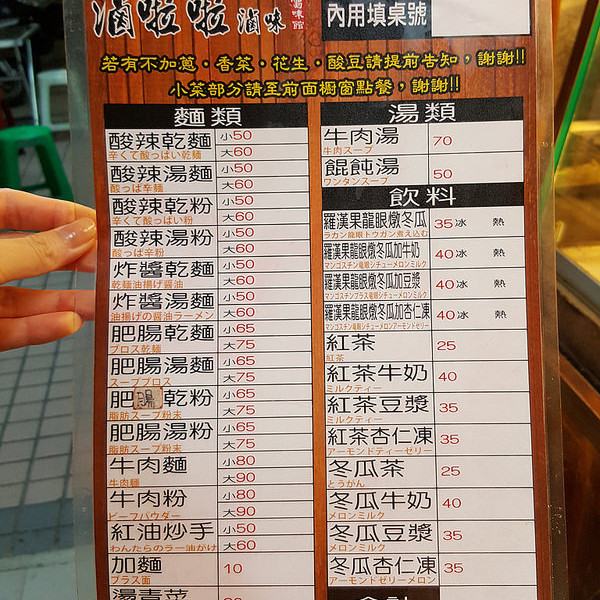 滷啦啦滷味
內用填桌號
若有不加蔥·香菜·花生·酸豆請提前告知,謝謝!!
小菜部分請至前面櫥窗點餐,謝謝!!
麵類
酸辣乾麵 小50
辛くて酸っぱい乾麵 大60
酸辣湯麵 小50
酸っぱ辛麵 大60
酸辣乾粉 小50
辛くて酸っぱい粉 大60
酸辣湯粉 小50
酸っぱ辛粉 大60
炸醬乾麵 小50
乾麵油揚げ醤油 大60
炸醬湯麵 小50
油揚げの醤油ラーメン 大60
肥腸乾麵 小65
ブロス乾麵 大75
肥腸湯麵 小65
スープブロス 大75
肥腸乾粉 小65
脂肪スープ粉末 大75
肥腸湯粉 小65
脂肪スープ粉末 大75
牛肉麵 小80
牛肉麵 大90
牛肉粉 小80
ビーフパウダー 大90
紅油炒手 小50
わんたらのラー油がけ 大60
加麵 10
プラス面
湯青菜
湯類
牛肉湯 70
牛肉スープ
餛飩湯 50
ワンタンスープ
飲料
羅漢果龍眼燉冬瓜 35冰 熱
ラカン龍眼トウガン煮え込む
羅漢果龍眼燉冬瓜加牛奶 40冰 熱
マンゴスチン竜眼シチューメロンミルク
羅漢果龍眼燉冬瓜加豆漿 40冰 熱
マンゴスチンプラス竜眼シチューメロンミルク
羅漢果龍眼燉冬瓜加杏仁凍 40冰 熱
マンゴスチン竜眼シチューメロンアーモンドゼリー
紅茶 25
紅茶
紅茶牛奶 40
ミルクティー
紅茶豆漿 35
ミルクティー
紅茶杏仁凍 35
アーモンドティーゼリー
冬瓜茶 25
とうがん
冬瓜牛奶 40
メロンミルク
冬瓜豆漿 35
メロンミルク
冬瓜杏仁凍 35
アーモンドゼリーメロン